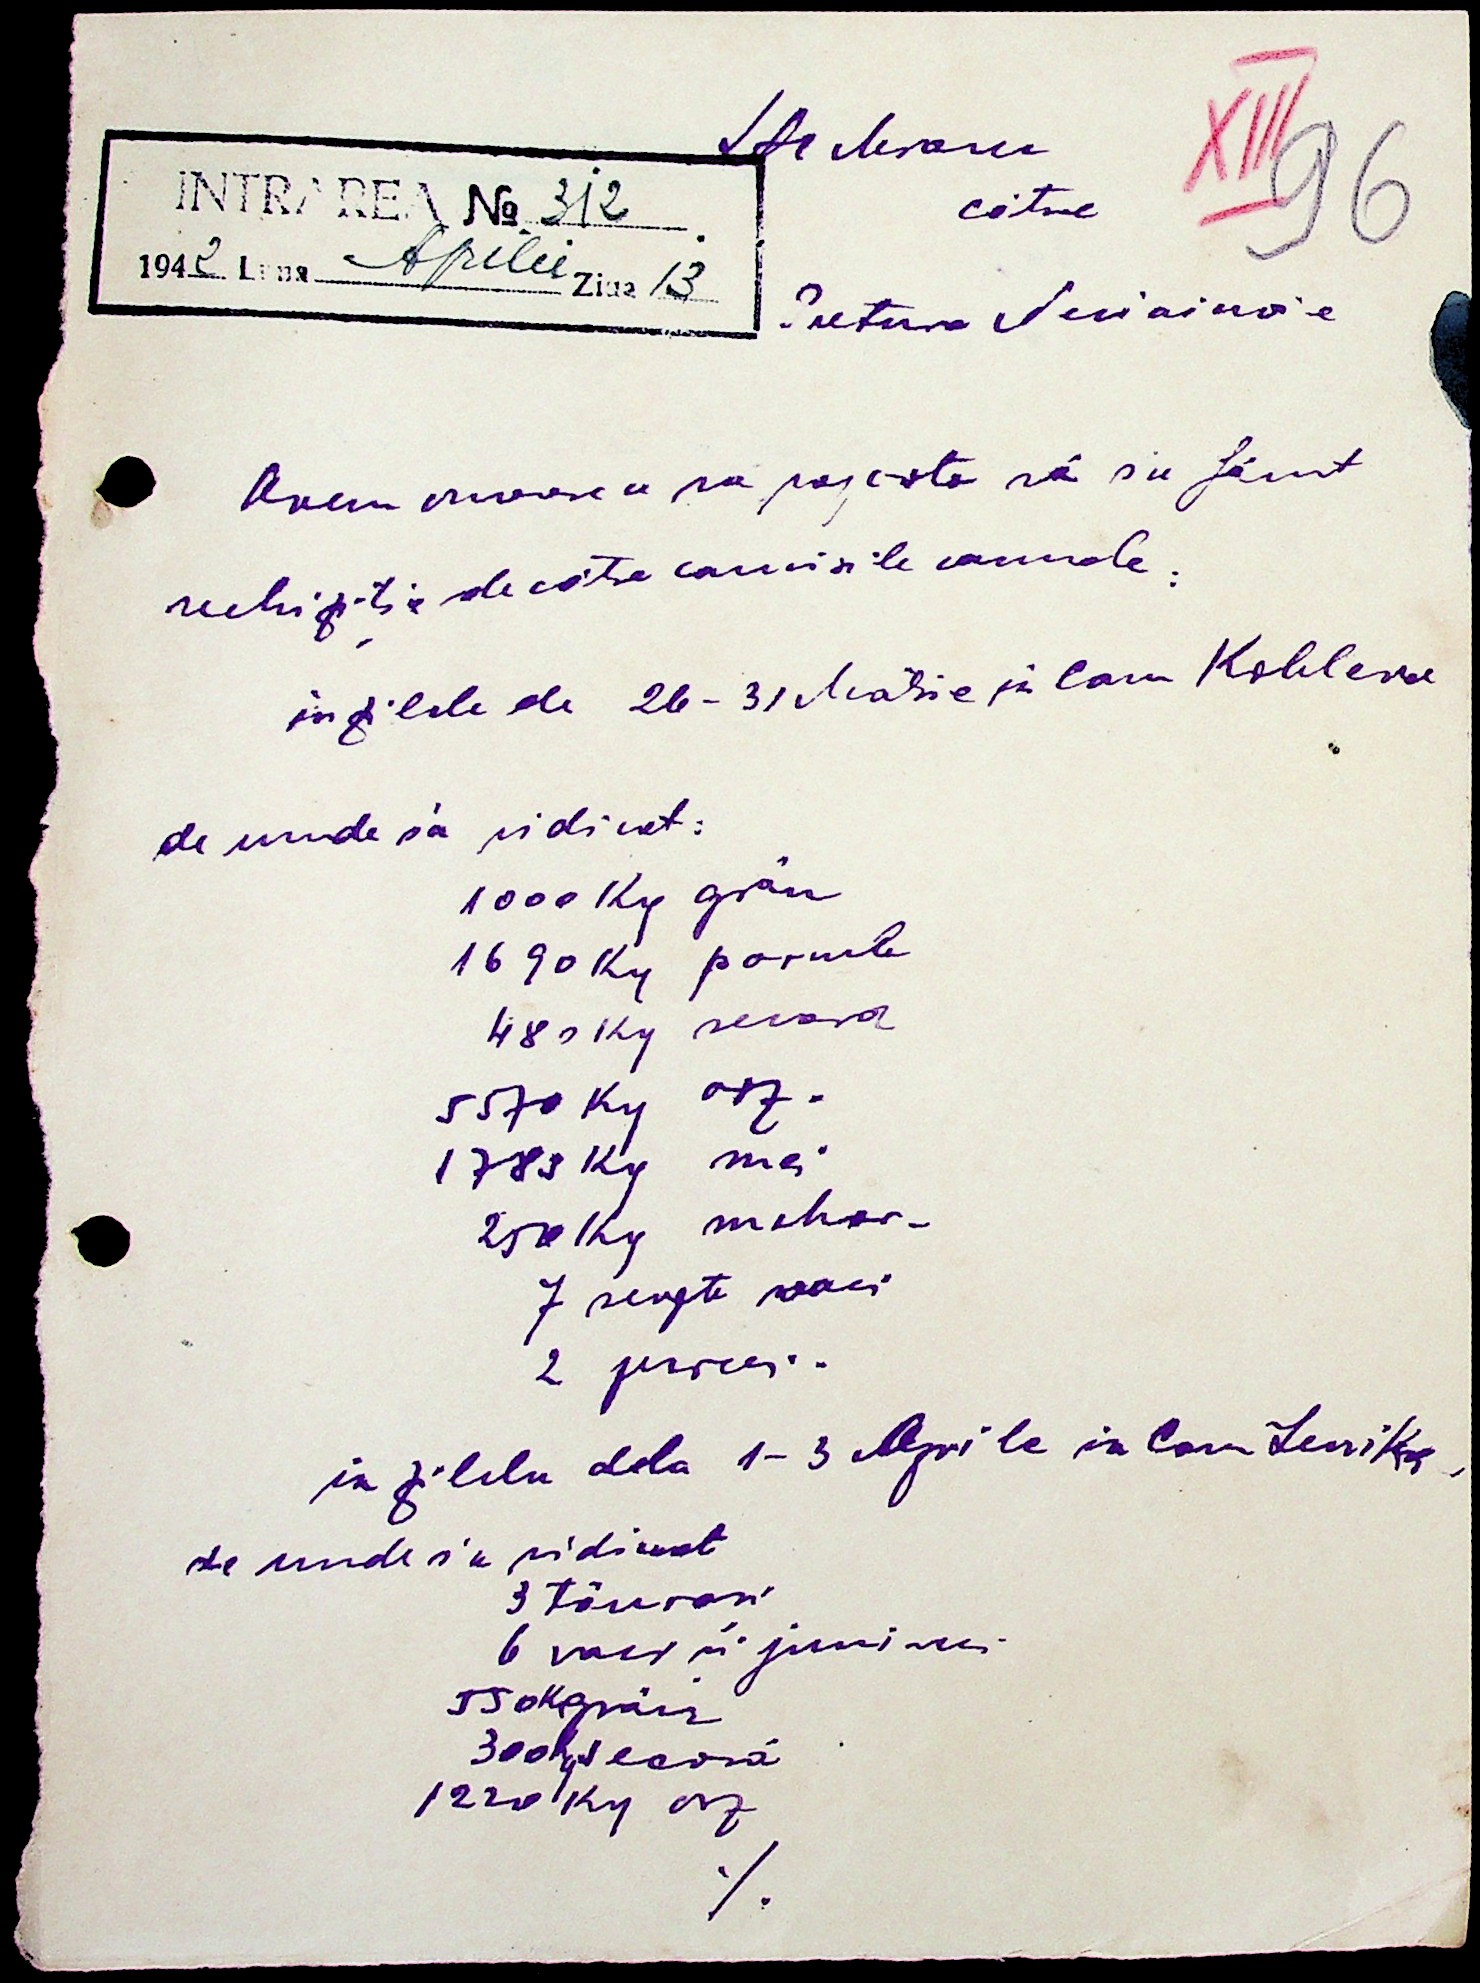 XIII 96
către
INTRAREA № 312
1942 Luna Aprilie Ziua 13
Pretura
Avem onoarea a raporta că s'a făcut
rechiziție de către comisiile comunale:
în zilele de 26-31 Martie in Com
de unde s'a ridicat:
1000 Kg grâu
1690 Kg porumb
480 Kg secară
5570 Kg orz.
1783 Kg mei
250 Kg mohor-
7 șeapte vaci
2 porci.
in zilele dela 1-3 Aprile in Com
de unde s'a ridicat
3 tăurași
6 vaci și juninci
550 Kg grâu
300 Kg secară
1220 Kg orz
./.